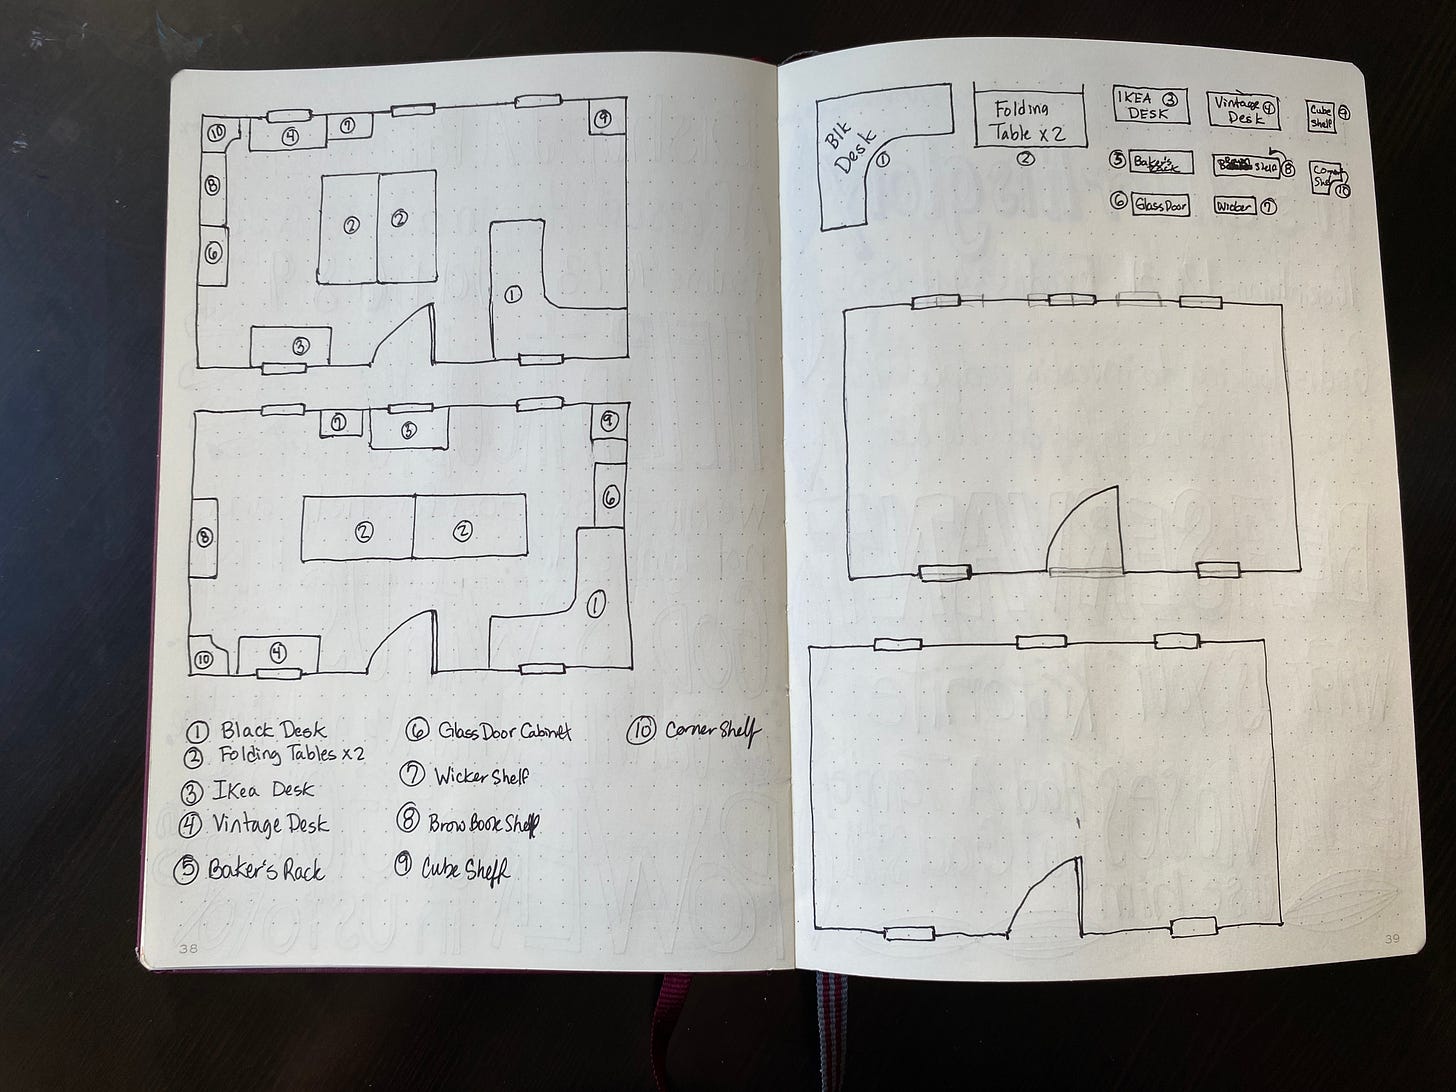 ⑩
④
⑦
⑨
⑧
②
②
⑥
①
③
⑦
③
⑨
⑥
②
②
⑧
①
⑩
④
① Black Desk
② Folding Tables x2
③ IKea Desk
④ Vintage Desk
⑤ Baker's Rack
⑥ Glass Door Cabinet
⑦ Wicker Shelf
⑧ Brow Book Shelf
⑨ Cube Shelf
⑩ Corner Shelf
38
Blk
Desk
①
Folding
Table x 2
②
IKEA ③
DESK
Vintage ④
Desk
Cube
Shelf
⑨
⑤ Baker's
Rack
Shelf ⑧
Corner
⑩
⑥ Glass Door
Wicker ⑦
39